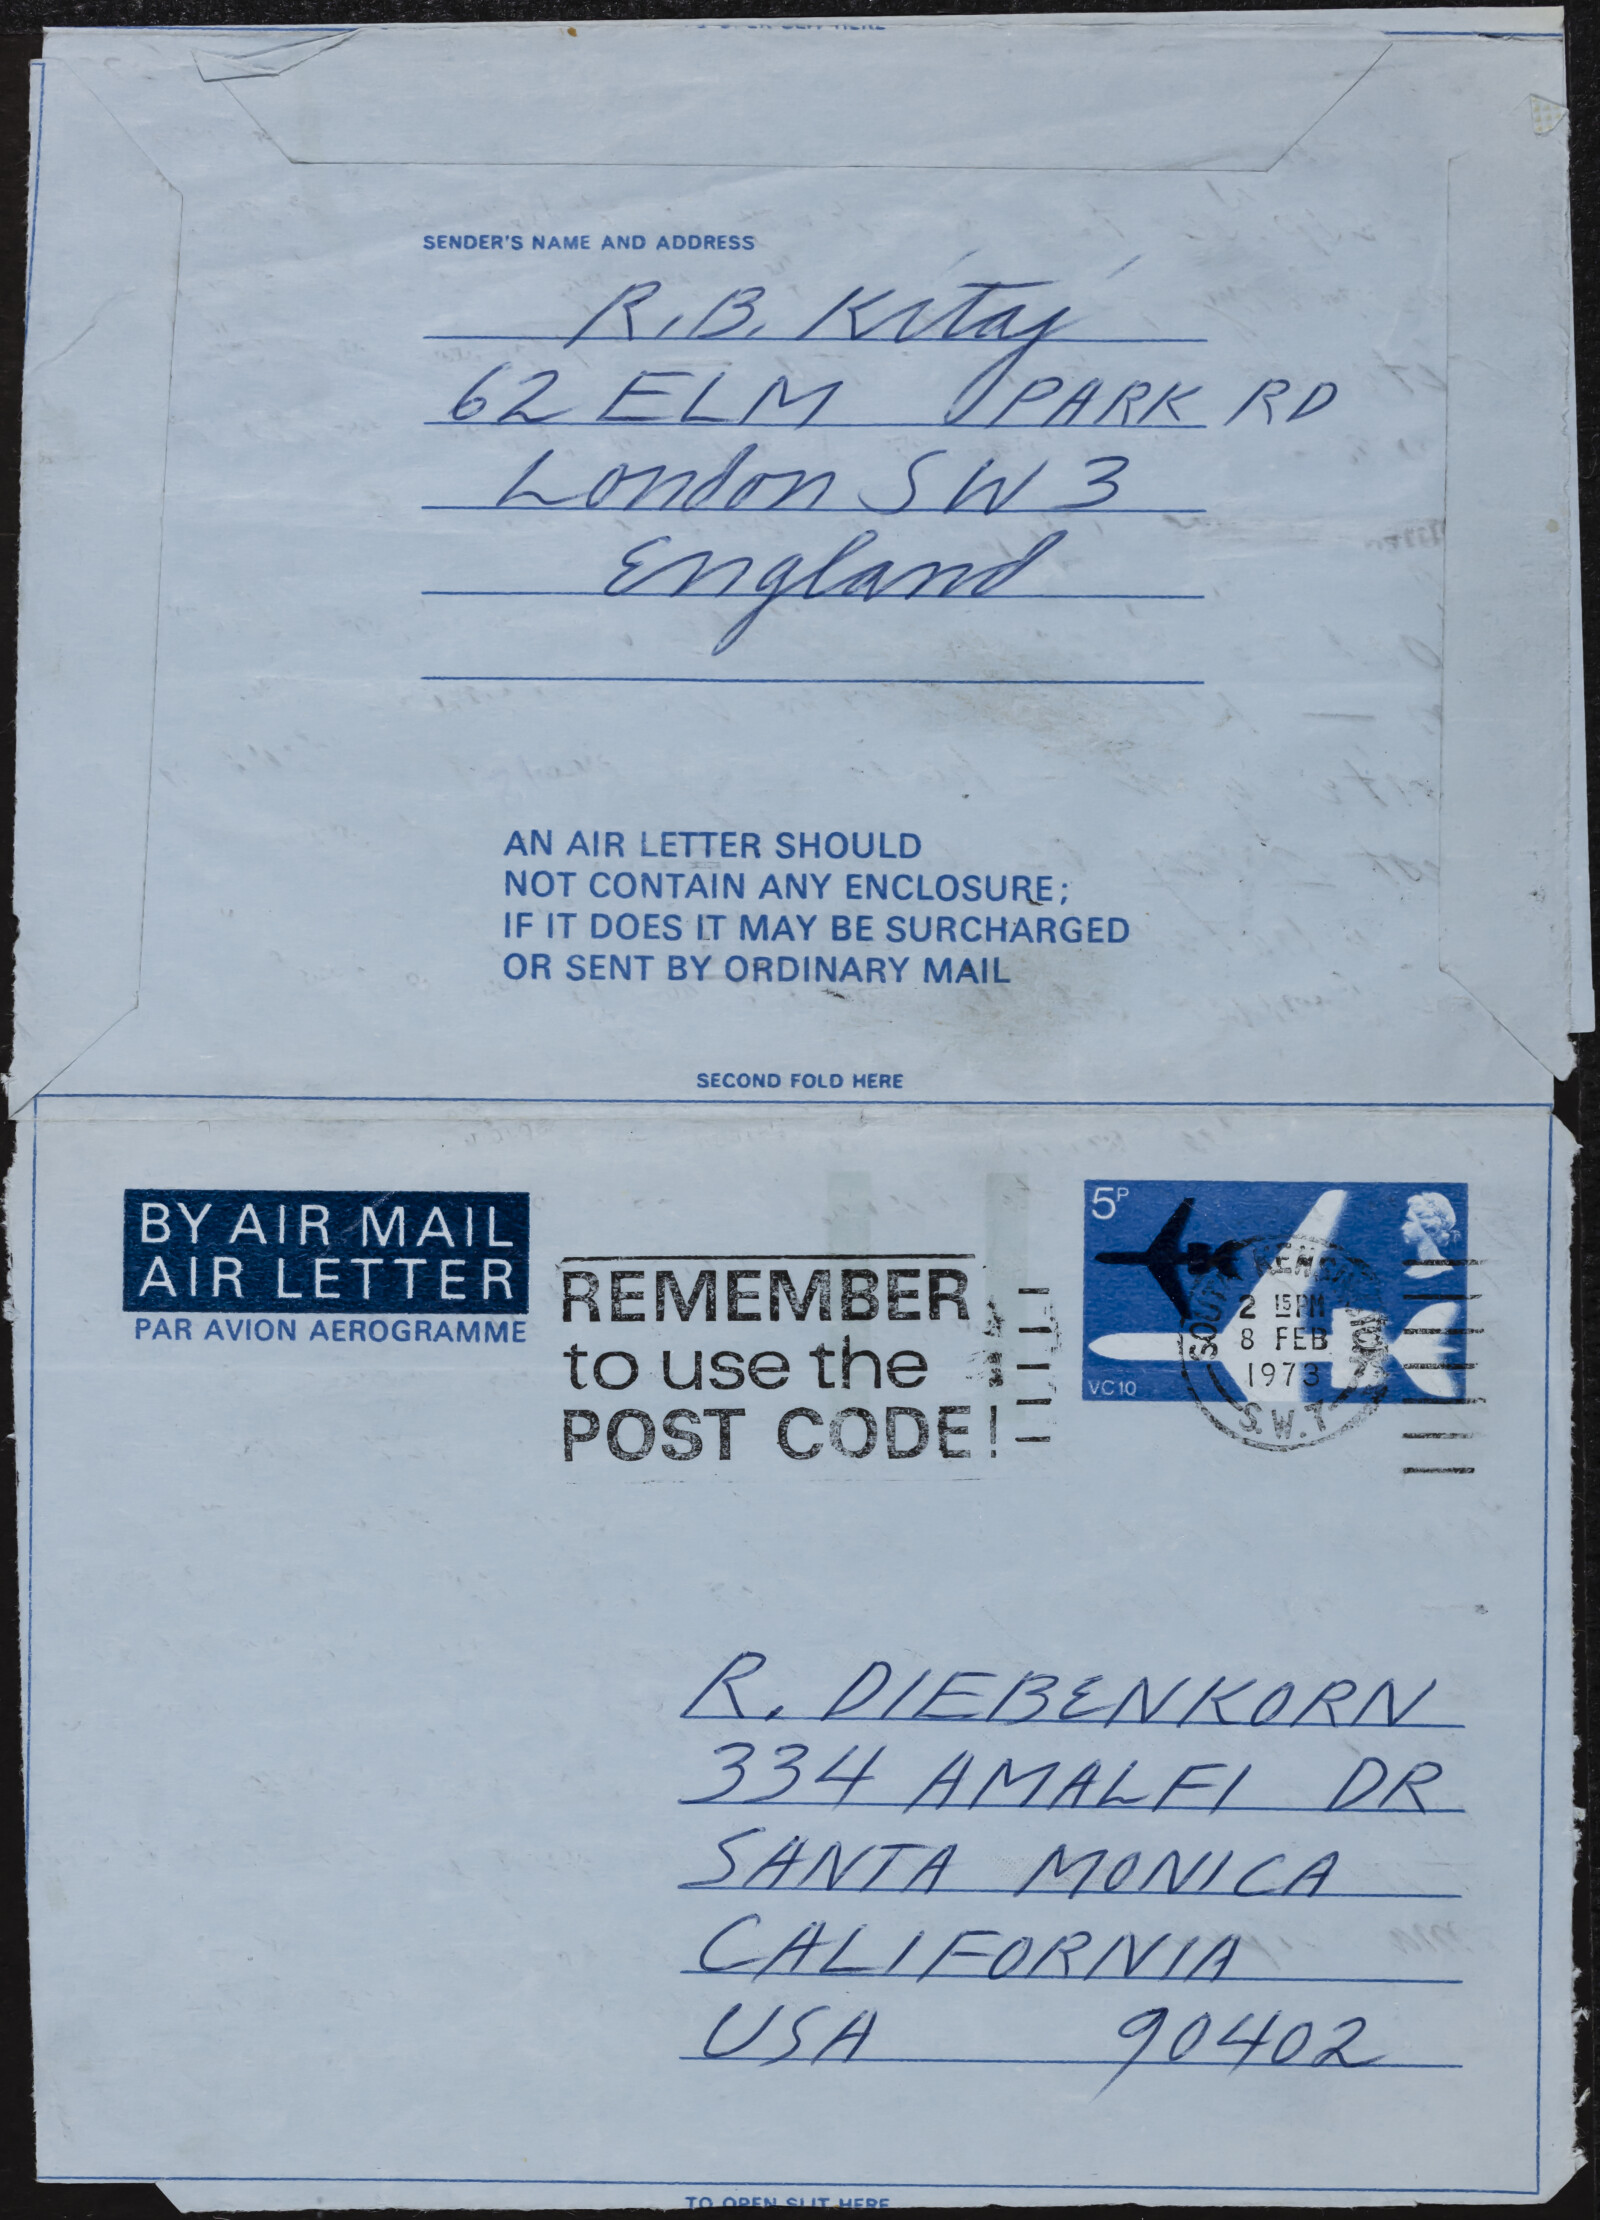 SENDER'S NAME AND ADDRESS
R.B. Kitaj
62 ELM PARK RD
London SW3
England
AN AIR LETTER SHOULD
NOT CONTAIN ANY ENCLOSURE;
IF IT DOES IT MAY BE SURCHARGED
OR SENT BY ORDINARY MAIL
SECOND FOLD HERE
BY AIR MAIL
AIR LETTER
PAR AVION AEROGRAMME
REMEMBER
to use the
POST CODE!
5P
VC10
SOUTH KENSINGTON
2 15 PM
8 FEB
1973
S.W.7
R. DIEBENKORN
334 AMALFI DR
SANTA MONICA
CALIFORNIA
USA 90402
TO OPEN SLIT HERE